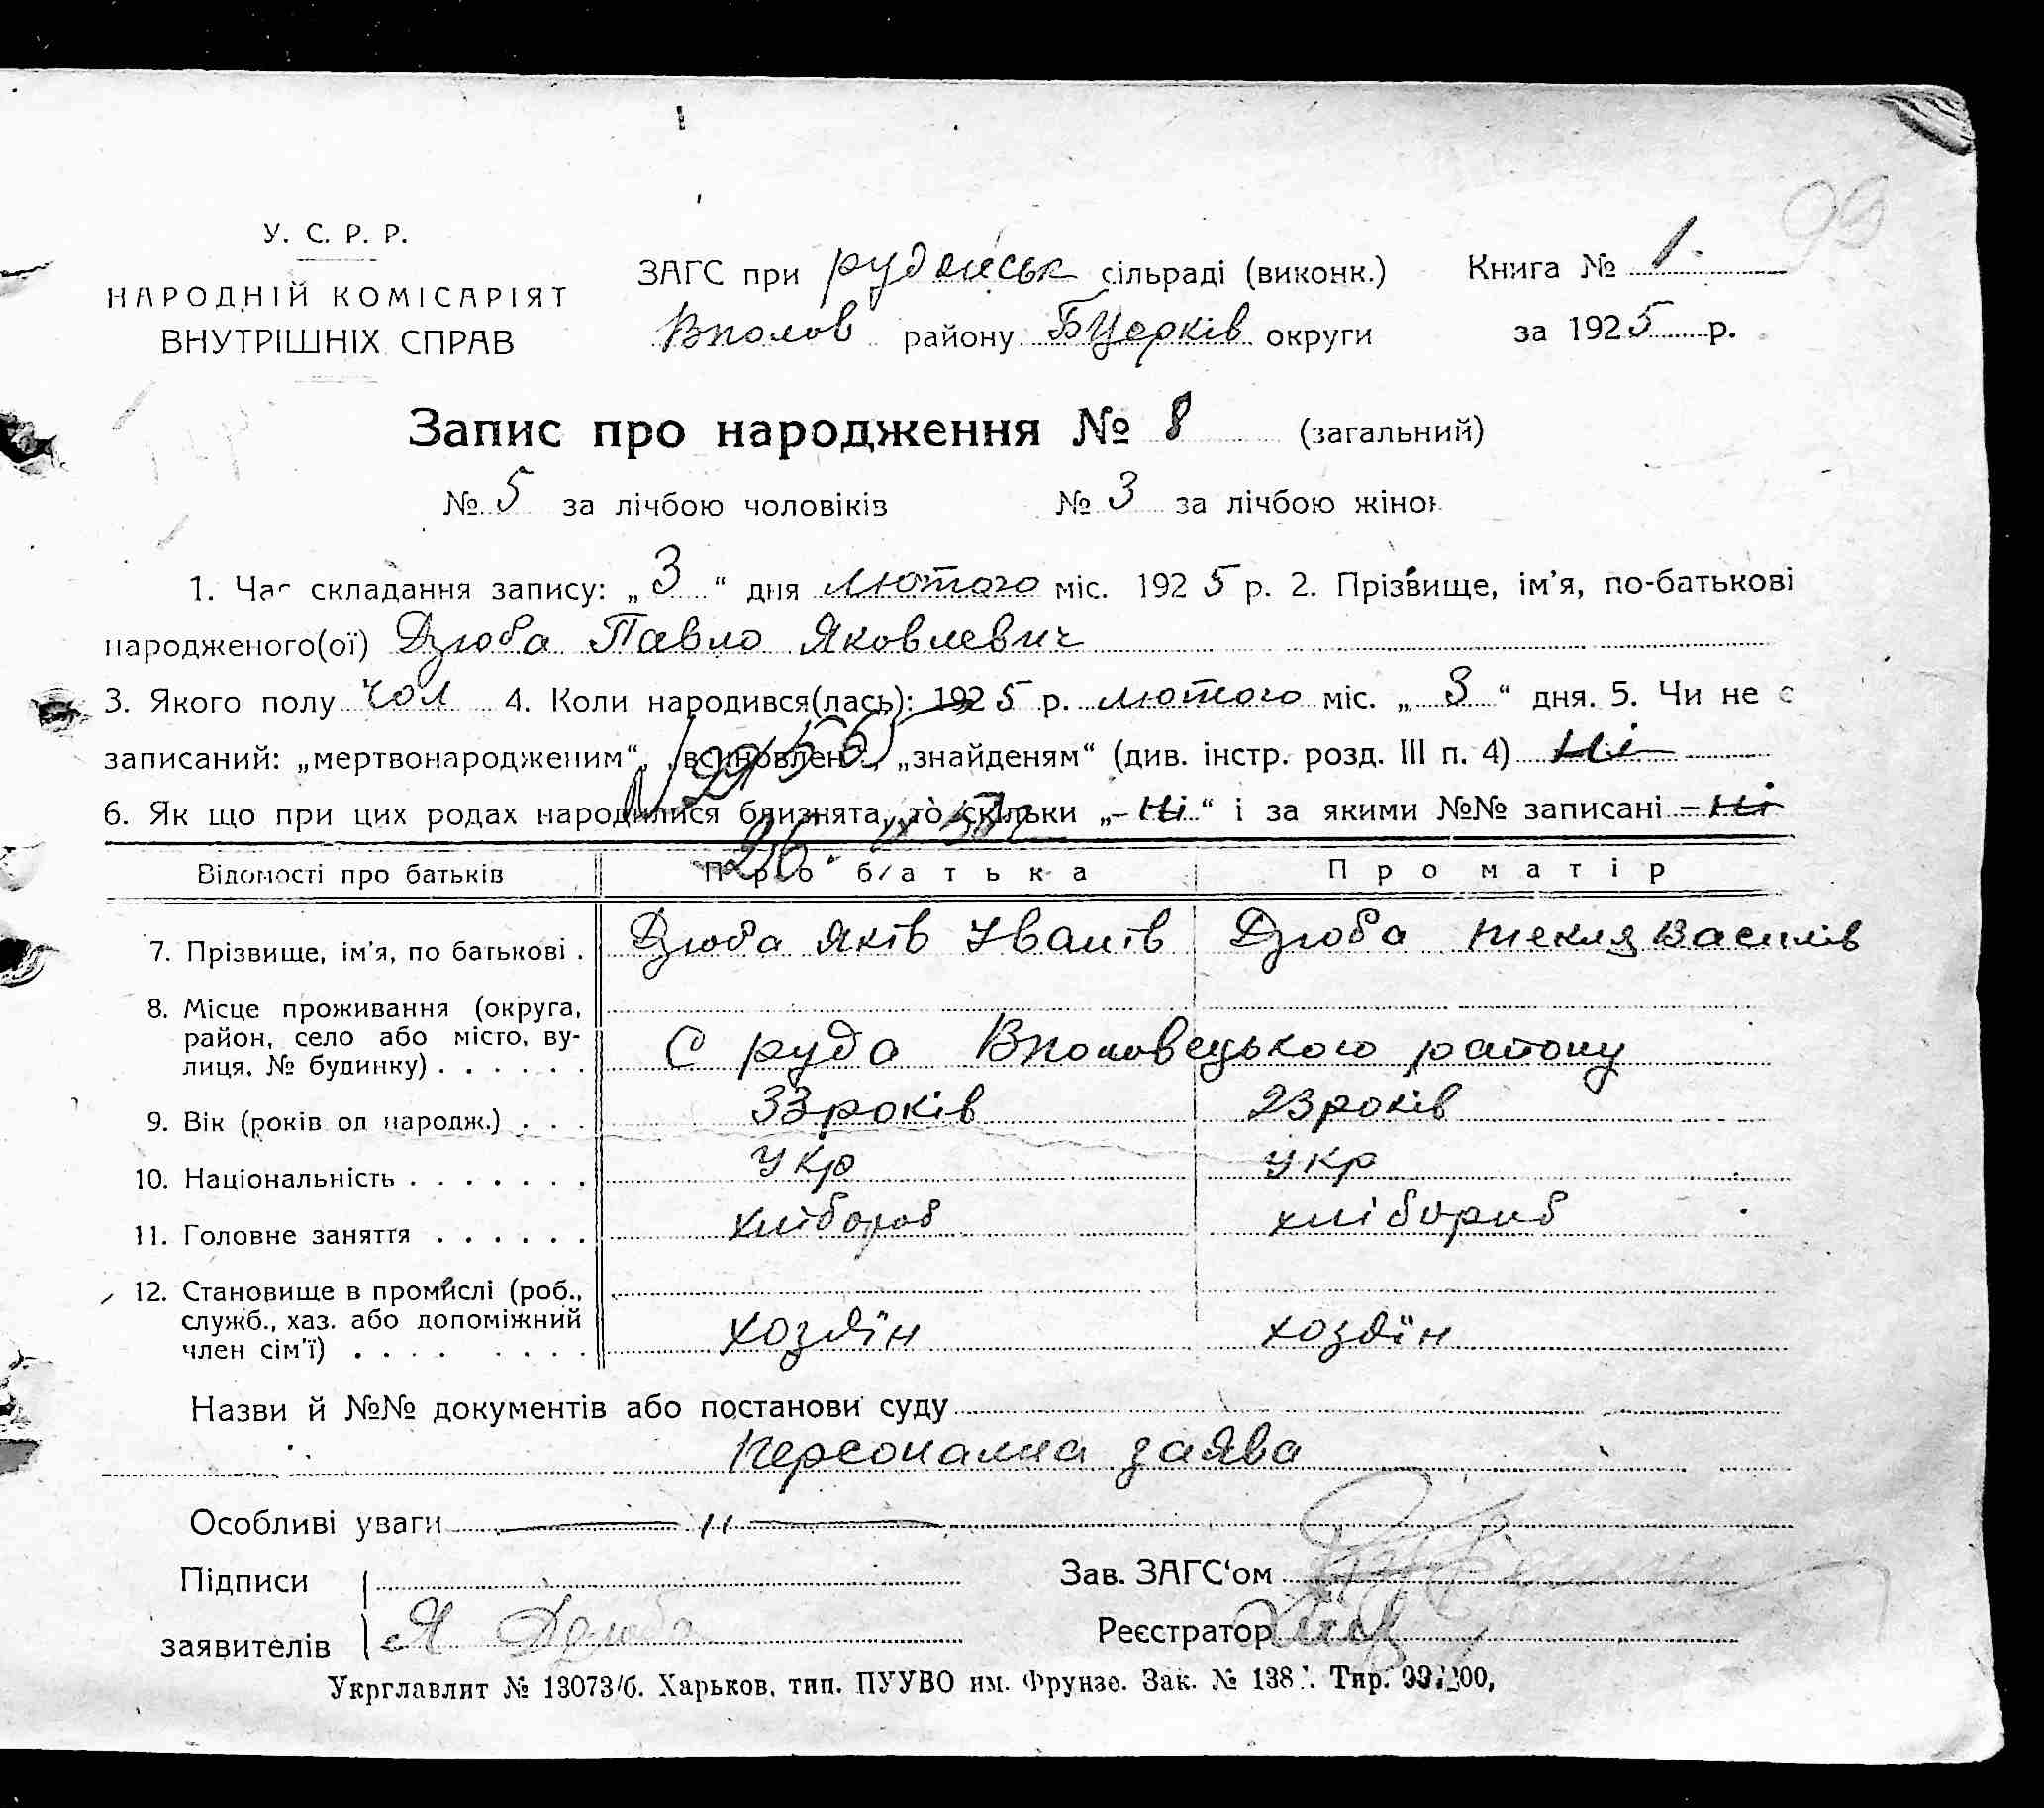 99
У. С. Р. Р.
НАРОДНІЙ КОМІСАРІЯТ
ВНУТРІШНІХ СПРАВ
ЗАГС при рудянськ сільраді (виконк.)
Вполов району БЦерків округи
Книга № 1
за 1925 р.
Запис про народження № 8 (загальний)
№ 5 за лічбою чоловіків № 3 за лічбою жінок
1. Час складання запису: „3“ дня лютого міс. 1925 р. 2. Прізвище, ім'я, по-батькові
народженого(ої) Дзюба Павло Яковлевич
3. Якого полу чол 4. Коли народився(лась): 1925 р. лютого міс. „3“ дня. 5. Чи не є
записаний: „мертвонародженим“, „всиновлен“, „знайденям“ (див. інстр. розд. III п. 4) Ні
6. Як що при цих родах народилися близнята, то скільки „Ні“ і за якими №№ записані Ні
Відомості про батьків Про батька Про матір
7. Прізвище, ім'я, по батькові . Дзюба Яків Іванів Дзюба текля Василів
8. Місце проживання (округа,
район, село або місто, ву-
лиця, № будинку) . . . . . . С руда Вполовецького району
9. Вік (років од народж.) . . . 33 років 23 років
10. Національність . . . . . . . Укр Укр
11. Головне заняття . . . . . . хлібороб хлібороб
12. Становище в промислі (роб.,
служб., хаз. або допоміжний
член сім'ї) . . . . . . . . хозяїн хозяїн
Назви й №№ документів або постанови суду
персонална заява
Особливі уваги — „ —
Підписи
заявителів Я Дзюба
Зав. ЗАГС'ом
Реєстратор
Укрглавлит № 13073/б. Харьков, тип. ПУУВО им. Фрунзе. Зак. № 138 Тир.